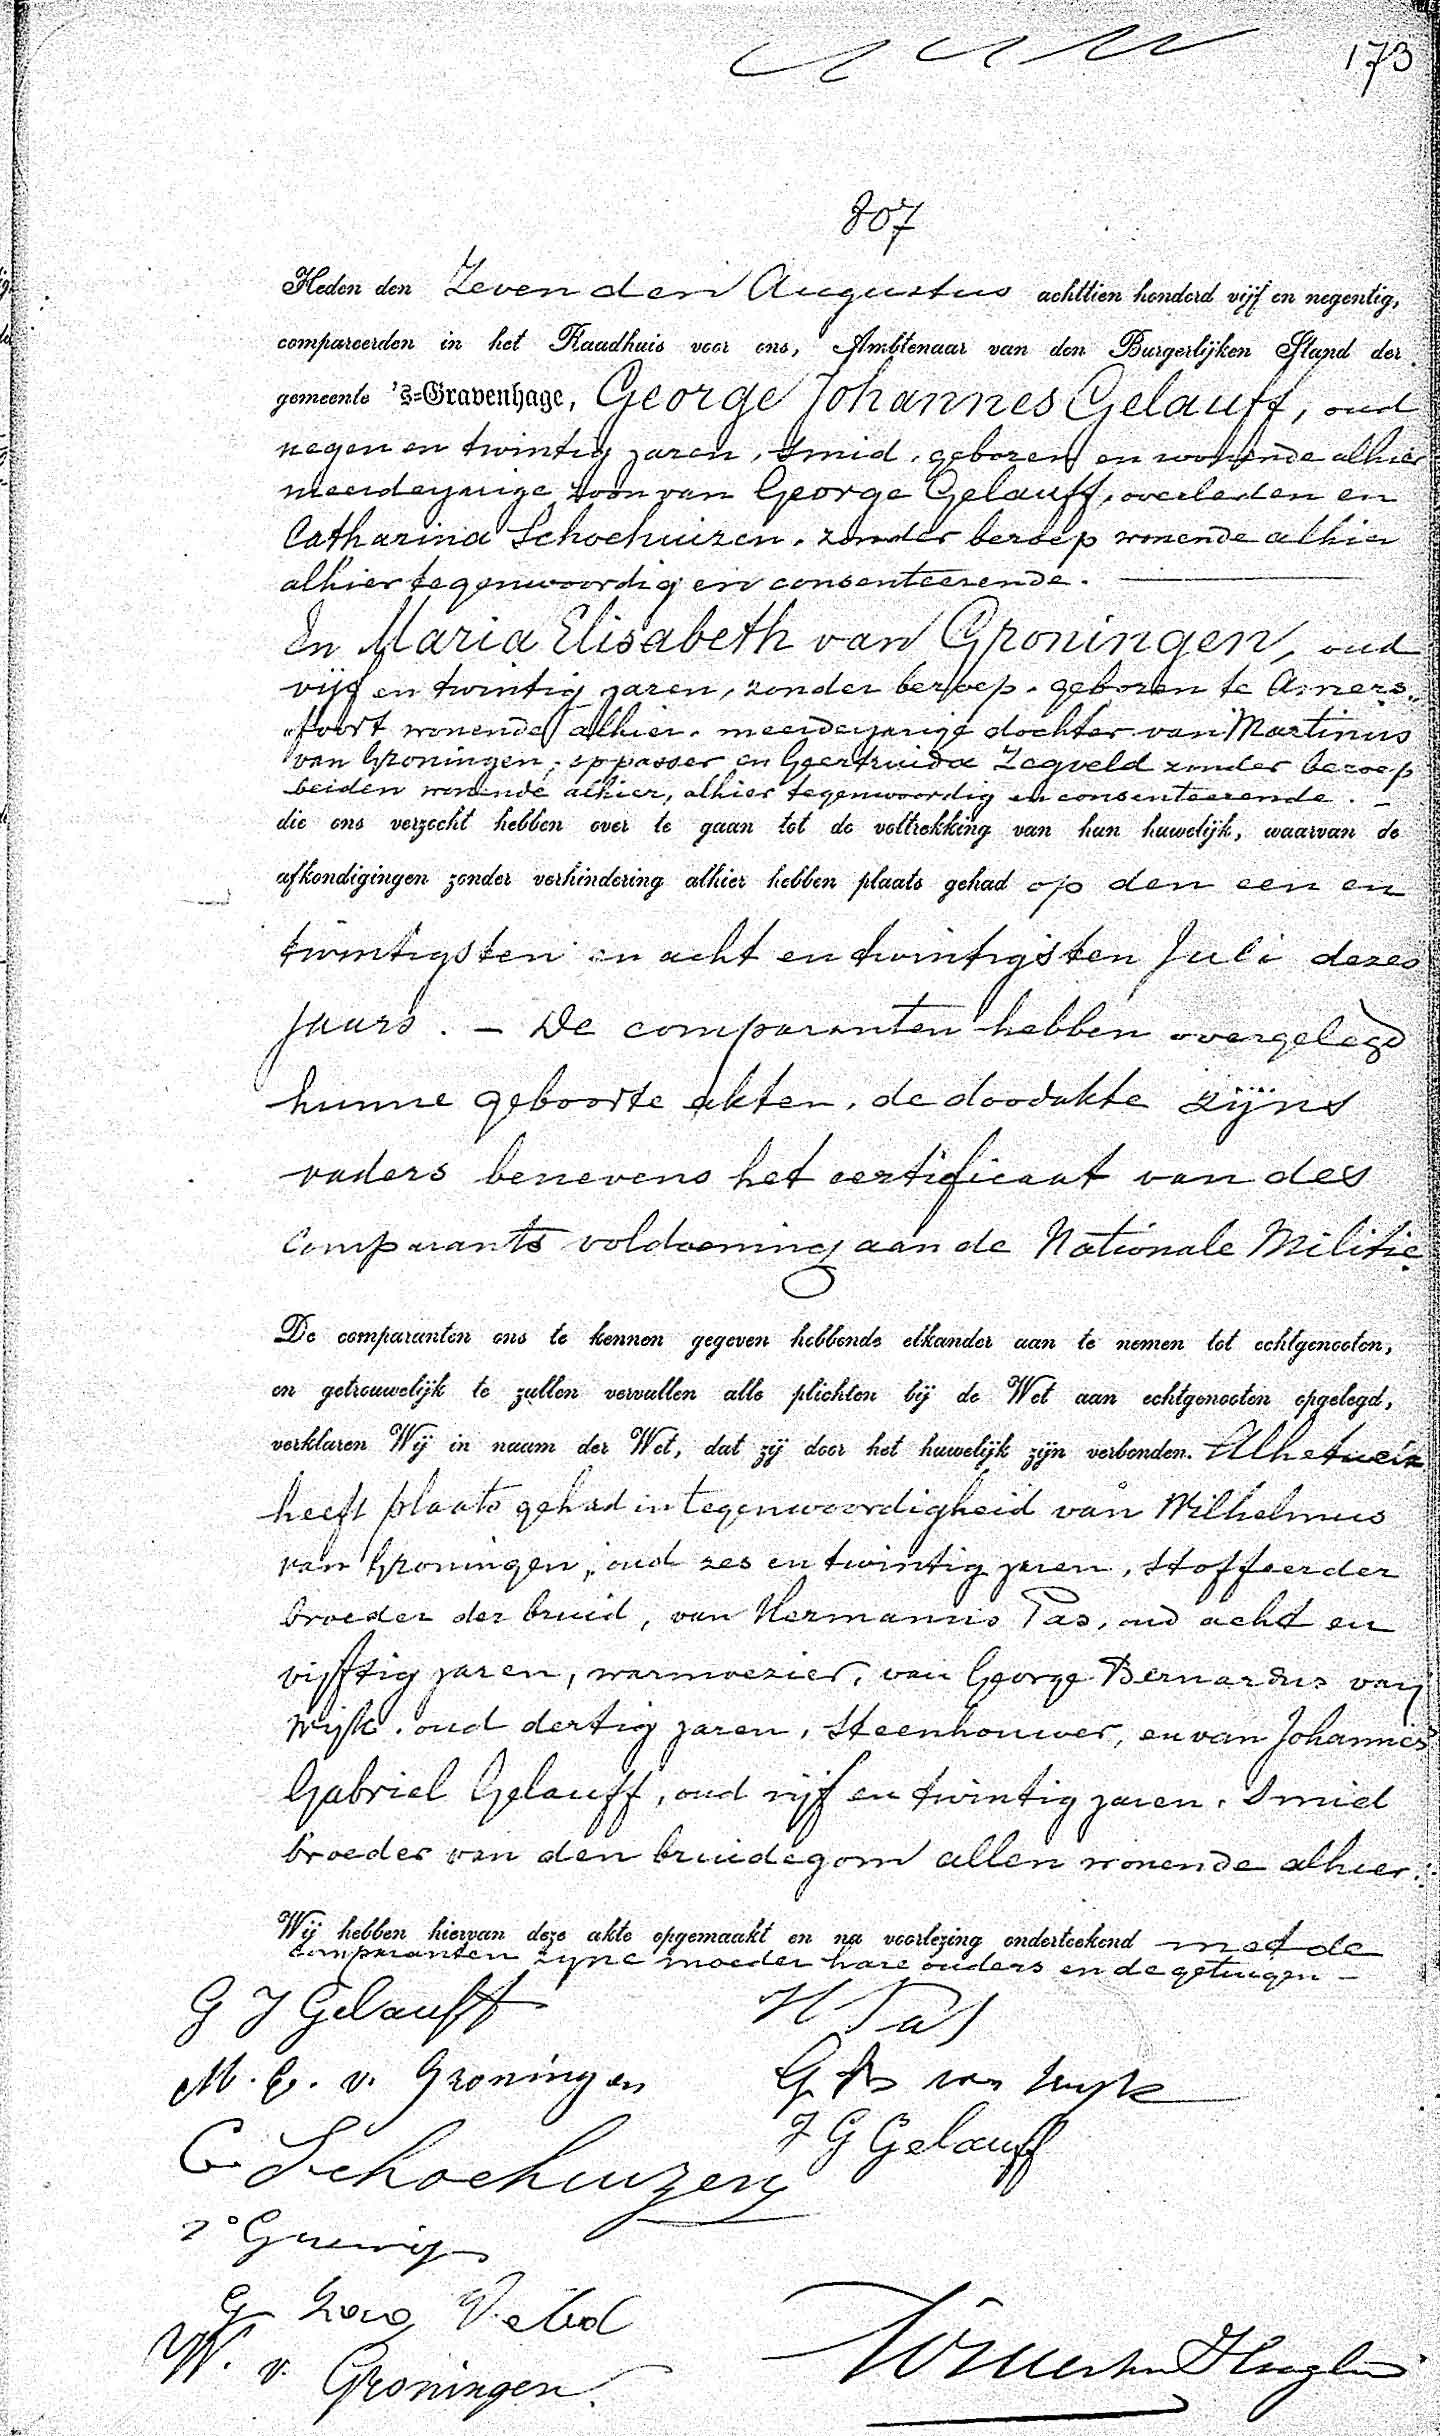 173
807
Heden den Zevenden Augustus achttien honderd vijf en negentig,
compareerden in het Raadhuis voor ons, Ambtenaar van den Burgerlijken Stand der
gemeente 's=Gravenhage, George Johannes Gelauff, oud
negen en twintig jaren, smid, geboren en wonende alhier
meerderjarige zoon van George Gelauff, overleden en
Catharina Schoehuizen, zonder beroep wonende alhier
alhier tegenwoordig en consenteerende.
En Maria Elisabeth van Groningen, oud
vijf en twintig jaren, zonder beroep, geboren te Amers„
„foort wonende alhier, meerderjarige dochter van Martinus
van Groningen, oppasser en Geertruida Zegveld zonder beroep
beiden wonende alhier, alhier tegenwoordig en consenteerende. –
die ons verzocht hebben over te gaan tot de voltrekking van hun huwelijk, waarvan de
afkondigingen zonder verhindering alhier hebben plaats gehad op den een en
twintigsten en acht en twintigsten Juli dezes
jaars. – De comparanten hebben overgelegd
hunne geboorte akten, de doodakte zijns
vaders benevens het certificaat van des
comparants voldoening aan de Nationale Militie.
De comparanten ons te kennen gegeven hebbende elkander aan te nemen tot echtgenooten,
en getrouwelijk te zullen vervullen alle plichten bij de Wet aan echtgenooten opgelegd,
verklaren Wij in naam der Wet, dat zij door het huwelijk zijn verbonden. Alhetwelk
heeft plaats gehad in tegenwoordigheid van Wilhelmus
van Groningen, oud zes en twintig jaren, stoffeerder
broeder der bruid, van Hermanus Pas, oud acht en
vijftig jaren, warmoezier, van George Bernardus van
Wijk, oud dertig jaren, steenhouwer, en van Johannes
Gabriel Gelauff, oud vijf en twintig jaren, smid
broeder van den bruidegom allen wonende alhier.
Wij hebben hiervan deze akte opgemaakt en na voorlezing onderteekend met de
comparanten zijne moeder hare ouders en de getuigen –
G J Gelauff
H Pas
M. E. v. Groningen
G B van Wijk
J G Gelauff
C. Schoehuizen
W. v. Groningen